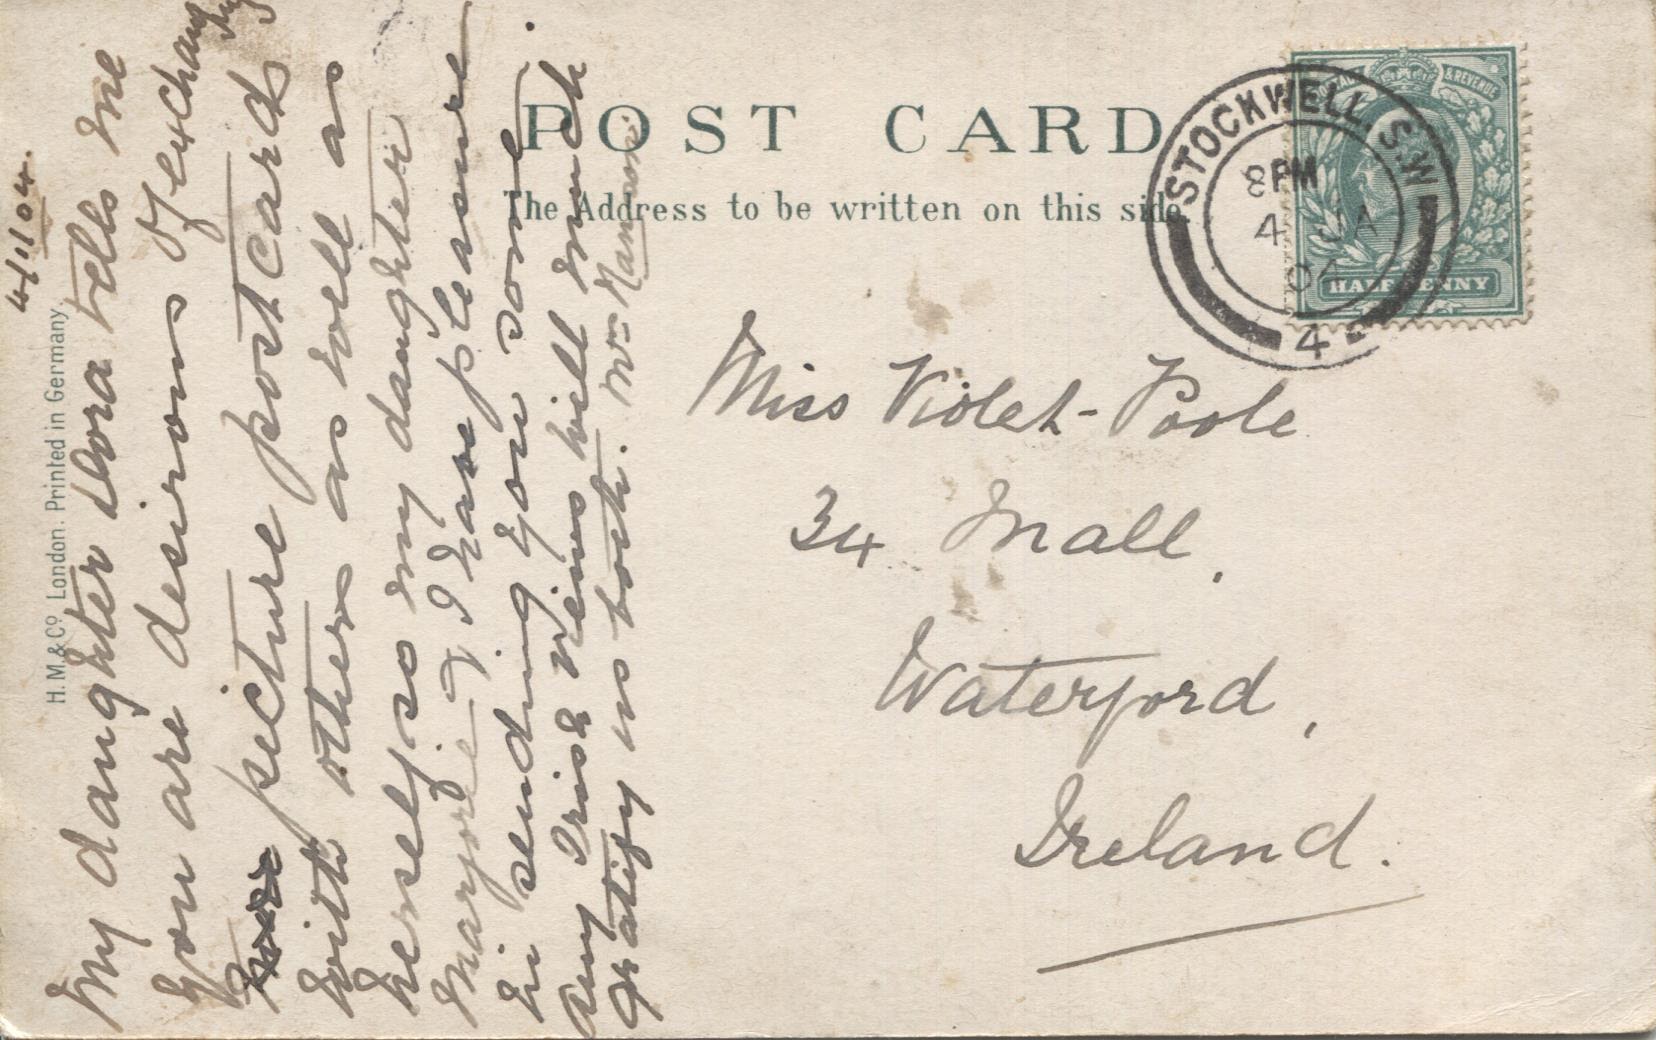 4/1/04.
My daughter Dora tells me
you are desirous of exchang
ing
picture postcards
with others as well as
herself so my daughter
Marjorie & I have pleasure
in sending you some.
Any Irish views will much
gratify us both. Mrs
H.M.&Co. London. Printed in Germany
POST CARD
The Address to be written on this side.
STOCKWELL. S.W
8PM
4 JA
04
42
& REVENUE
HALFPENNY
Miss Violet Poole
34 Mall,
Waterford,
Ireland.